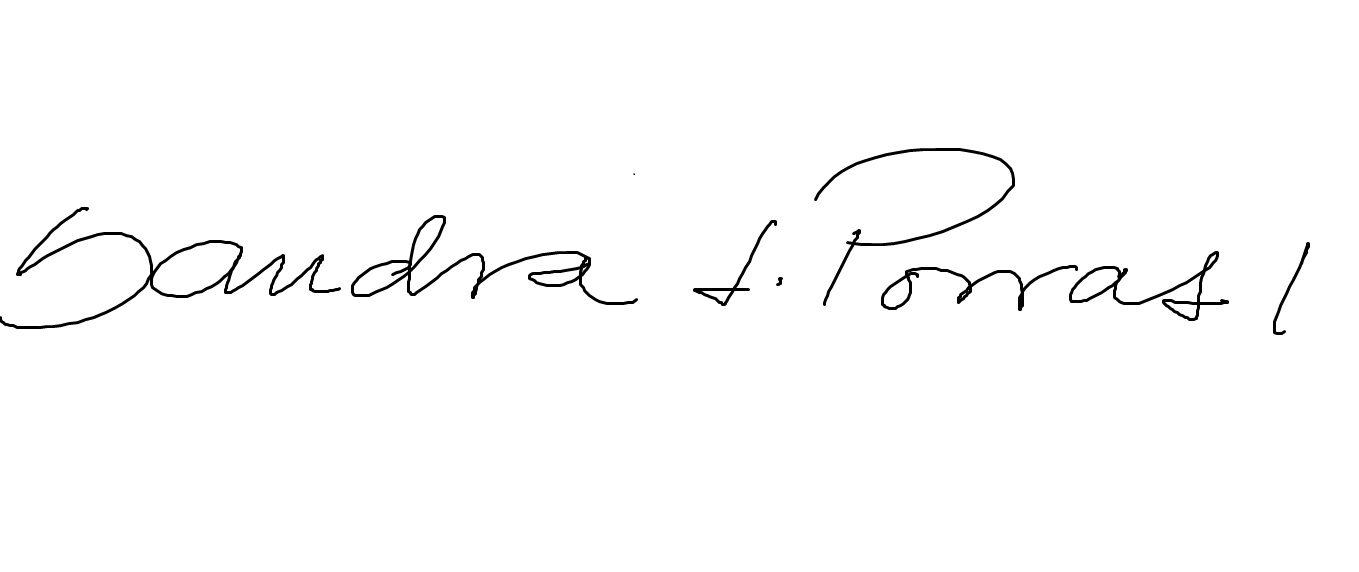 Sandra L. Porras